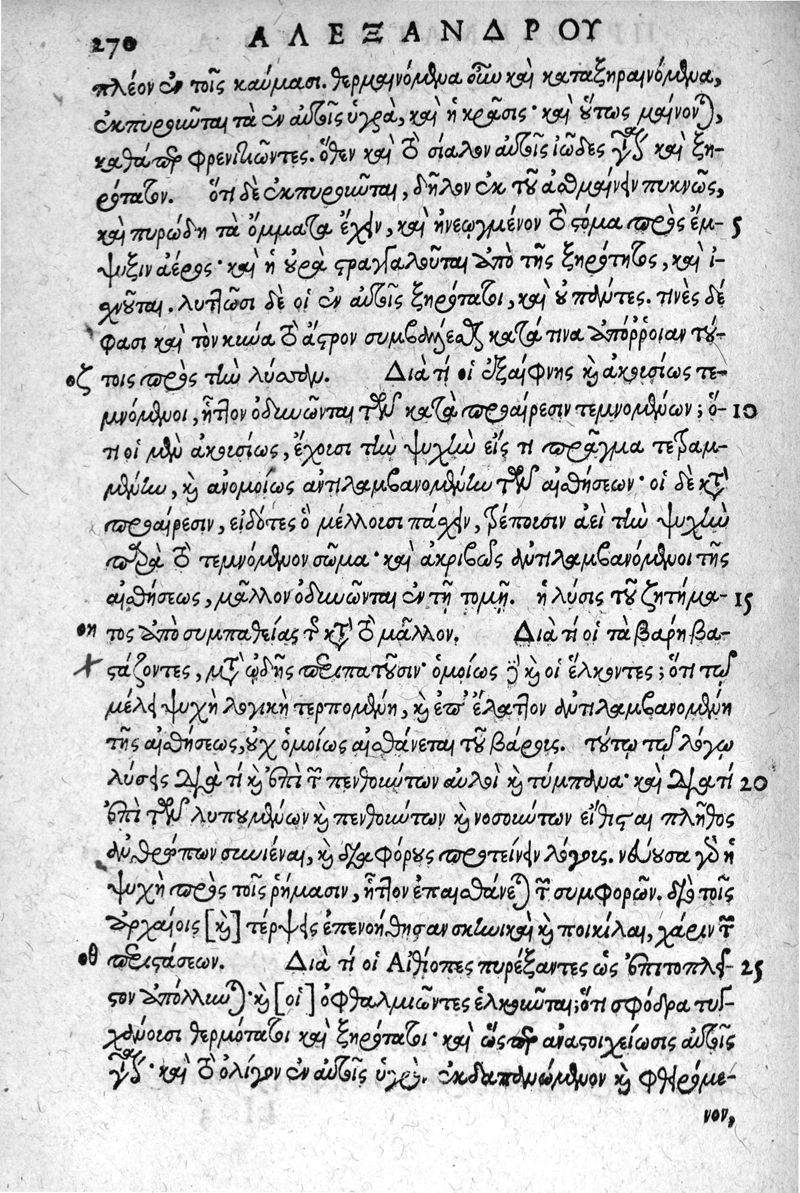 270 ΑΛΕΞΑΝΔΡΟΥ
πλέον ἐν τοῖς καύμασι. θερμαινόμενα οὖν καὶ καταξηραινόμενα,
ἐκπυροῦνται τὰ ἐν αὐτοῖς ὑγρὰ, καὶ ἡ κρᾶσις· καὶ οὕτως μαίνονται,
καθάπερ φρενιτιῶντες. ὅθεν καὶ τὸ σίαλον αὐτοῖς ἰῶδες γίνεται καὶ ξη-
ρότατον. ὅτι δὲ ἐκπυροῦνται, δῆλον ἐκ τοῦ ἀσθμαίνειν πυκνῶς,
καὶ πυρώδη τὰ ὄμματα ἔχειν, καὶ ἠνεῳγμένον τὸ στόμα πρὸς ἔμ- 5
ψυξιν ἀέρος· καὶ ἡ οὐρὰ στραγγαλοῦται ἀπὸ τῆς ξηρότητος, καὶ ἰ-
σχνοῦται. λυττῶσι δὲ οἱ ἐν αὐτοῖς ξηρότατοι, καὶ τινὲς δέ
φασι καὶ τὸν κύνα τὸ ἄστρον συμβάλλεσθαι κατά τινα ἀπόῤῥοιαν τού-
οζ τοις πρὸς τὴν λύσσαν. Διὰ τί οἱ ἐξαίφνης καὶ ἀκουσίως τε-
μνόμενοι, ἧττον ὀδυνῶνται τῶν κατὰ προαίρεσιν τεμνομένων; ὅ- 10
τι οἱ μὲν ἀκουσίως, ἔχουσι τὴν ψυχὴν εἴς τι πρᾶγμα τεταμ-
μένην, καὶ ἀνομοίως ἀντιλαμβανομένην τῶν αἰσθήσεων· οἱ δὲ κατὰ
προαίρεσιν, εἰδότες ὃ μέλλουσι πάσχειν, τρέπουσιν ἀεὶ τὴν ψυχὴν
παρὰ τὸ τεμνόμενον σῶμα· καὶ ἀκριβῶς ἀντιλαμβανόμενοι τῆς
αἰσθήσεως, μᾶλλον ὀδυνῶνται ἐν τῇ τομῇ. ἡ λύσις τοῦ ζητήμα- 15
οη τος ἀπὸ συμπαθείας τῆς κατὰ τὸ μᾶλλον. Διὰ τί οἱ τὰ βάρη βα-
στάζοντες, μετʼ ᾠδῆς περιπατοῦσιν· ὁμοίως δὲ καὶ οἱ ἕλκοντες; ὅτι τῷ
μέλει ψυχὴ λογικὴ τερπομένη, καὶ ἐπʼ ἔλαττον ἀντιλαμβανομένη
τῆς αἰσθήσεως, οὐχ ὁμοίως αἰσθάνεται τοῦ βάρους. τούτῳ τῷ λόγῳ
λύσεις διὰ τί καὶ ἐπὶ τῶν πενθούντων αὐλοὶ καὶ τύμπανα· καὶ διὰ τί 20
ἐπὶ τῶν λυπουμένων καὶ πενθούντων καὶ νοσούντων εἴθισται πλῆθος
ἀνθρώπων συνιέναι, καὶ διαφόρους προτείνειν λόγους. νεύουσα γὰρ ἡ
ψυχὴ πρὸς τοῖς ῥήμασιν, ἧττον ἐπαισθάνεται τῶν συμφορῶν. διὸ τοῖς
ἀρχαίοις [καὶ] τέρψεις ἐπενοήθησαν σκηνικαὶ καὶ ποικίλαι, χάριν τῶν
οθ περιστάσεων. Διὰ τί οἱ Αἰθίοπες πυρέξαντες ὡς ἐπιτοπλεῖ- 25
στον ἀπόλλυνται· καὶ [οἱ] ὀφθαλμιῶντες ἑλκοῦνται; ὅτι σφόδρα τυγ-
χάνουσι θερμότατοι καὶ ξηρότατοι· καὶ ὥσπερ ἀναστοιχείωσις αὐτοῖς
γίνεται· καὶ τὸ ὀλίγον ἐν αὐτοῖς ὑγρὸν ἐκδαπανώμενον καὶ φθειρόμε-
νον,